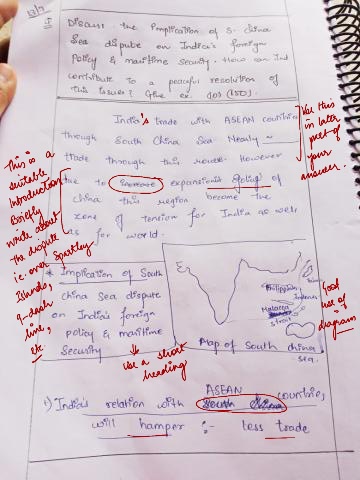 Discuss the implication of S. China
Sea dispute on India's foreign
Policy & maritime security. How can Ind
contribute to a peaceful resolution of
this issues? Give ex. (10) (150).
India's trade with ASEAN countries
through South China Sea. Nearly ~
trade through this route. However
due to expansionist policy of
china this region become the
zone of tension for India as well
as for world.
Use this
in later
part of
your
answer.
This is a
suitable
Introduction
Briefly
write about
the dispute
i.e. over Spartley
Islands,
9-dash
line,
etc
* Implication of South
China Sea dispute
on India's foreign
policy & maritime
Security
Use a short
heading
Philippines
Malacca
strait
Map of South china
sea.
Good
use of
diagram
1) India's relation with ASEAN countries,
will hamper :- less trade